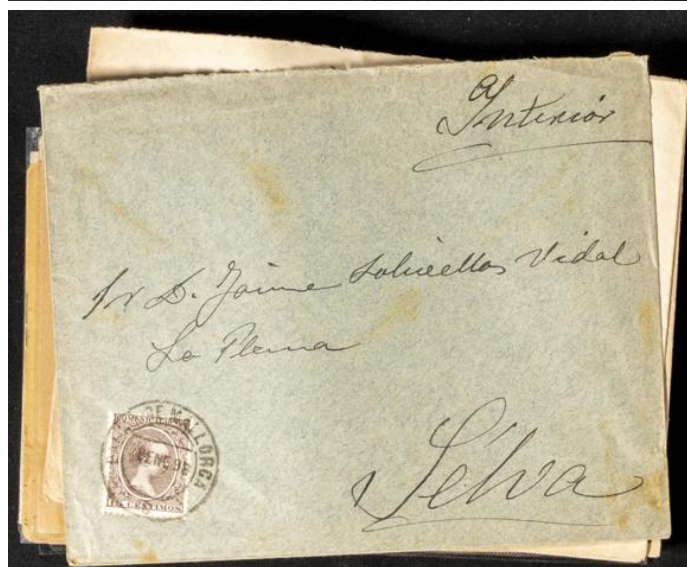 Interior
Sr D. Jaime Solivellas Vidal
La Plana
Selva
DE MALLORCA
ENE 98
15 CENTIMOS